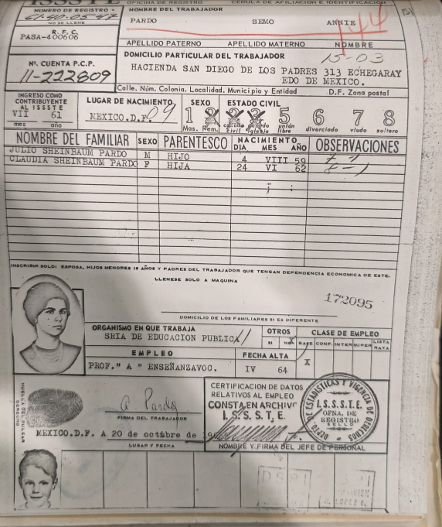 NUMERO DE REGISTRO
NOMBRE DEL TRABAJADOR
PARDO SEMO ANNIE
R. F. C.
PASA-400606
APELLIDO PATERNO APELLIDO MATERNO NOMBRE
DOMICILIO PARTICULAR DEL TRABAJADOR
15-03
Nº. CUENTA P.C.P.
HACIENDA SAN DIEGO DE LOS PADRES 313 ECHEGARAY
11-222809
EDO DE MEXICO.
Calle, Núm. Colonia, Localidad, Municipio y Entidad D.F. Zona postal
INGRESO COMO CONTRIBUYENTE AL ISSSTE
LUGAR DE NACIMIENTO SEXO ESTADO CIVIL
VII 61
MEXICO.D.F.
5 6 7 8
mes año
Mas. Fem.
unión libre divorciado viudo soltero
NOMBRE DEL FAMILIAR SEXO PARENTESCO NACIMIENTO OBSERVACIONES
DIA MES AÑO
JULIO SHEINBAUM PARDO M HIJO 4 VIII 59
CLAUDIA SHEINBAUM PARDO F HIJA 24 VI 62
INSCRIBIR SOLO: ESPOSA, HIJOS MENORES 18 AÑOS Y PADRES DEL TRABAJADOR QUE TENGAN DEPENDENCIA ECONOMICA DE ESTE.
LLENESE SOLO A MAQUINA
172095
DOMICILIO DE LOS FAMILIARES SI ES DIFERENTE
ORGANISMO EN QUE TRABAJA OTROS CLASE DE EMPLEO
SRIA DE EDUCACION PUBLICA
SI NO BASE CONF. INTER SUPER LISTA RAYA
EMPLEO FECHA ALTA
X
PROF. "A" ENSEÑANZAVOC. IV 64
CERTIFICACION DE DATOS
RELATIVOS AL EMPLEO
CONSTA EN ARCHIVO
I. S. S. S. T. E.
A Pardo
FIRMA DEL TRABAJADOR
DEPTO. DE ESTADISTICAS Y VIGENCIA DE DERECHOS
I.S.S.S.T.E.
OFNA. DE REGISTRO
SELLO
MEXICO.D.F. A 20 de octubre de
LUGAR Y FECHA
NOMBRE Y FIRMA DEL JEFE DE PERSONAL